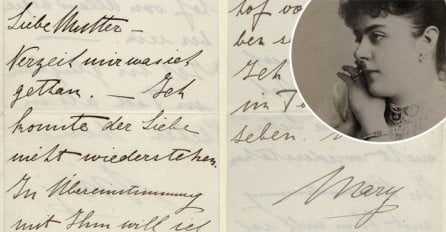 Liebe Mutter –
Verzeit mir was ich
gethan. – Ich
konnte der Liebe
nicht wiederstehen.
In Übereinstimmung
mit Ihm will ich
hof vo
ben s
Ich
im To
Leben.
Mary